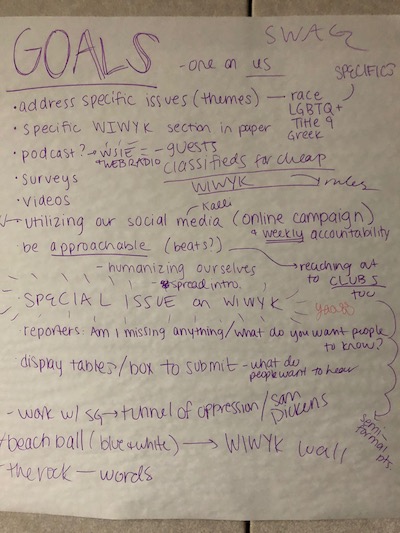 GOALS
SWAG
- one on us
SPECIFICS
• address specific issues (themes) — race
LGBTQ+
Title 9
Greek
• specific WIWYK section in paper
• podcast? → WSIE = - guests
+ WEB RADIO
classifieds for cheap
• surveys
WIWYK → rules
• videos
Kalli
- utilizing our social media (online campaign)
& weekly accountability
be approachable (beats?)
→ reaching out
to CLUBS
too
- humanizing ourselves
* spread intro.
SPECIAL ISSUE on WIWYK
reporters: Am I missing anything/what do you want people
to know?
display tables/box to submit - what do
people want to hear
- work w/ SG → tunnel of oppression/Sam
Dickens
semi-
formal
pts.
- beach ball (blue & white) → WIWYK wall
- the rock — words